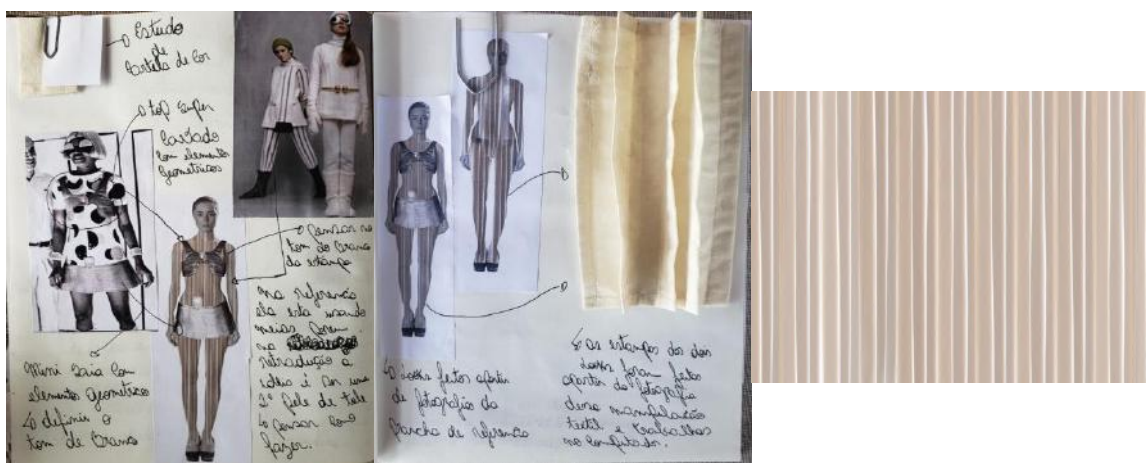 Estudo
de
Cartela de Cor
top super
cortado
com elementos
Geometricos
pensar no
tom do branco
da estampa
na referencia
ela esta usando
meias porem
na
retradução a
ideia é ser uma
2ª pele de tule
pensar como
fazer.
Mini Saia com
elementos geometricos
definir o
tom de branco
looks feitos apartir
de fotografia da
prancha de referencia
as estampas dos dois
looks foram feitas
apartir da fotografia
dessa manipulação
textil e trabalhas
no computador.